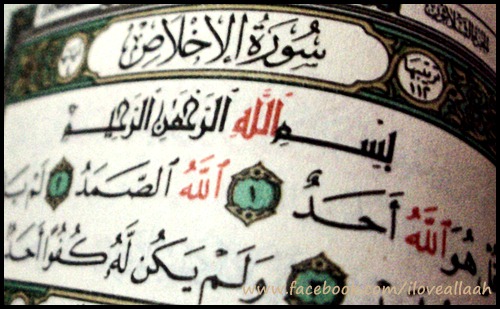 سُورَةُ الإِخْلَاصِ
ترتيبها ١١٢
بِسْمِ ٱللَّهِ ٱلرَّحْمَٰنِ ٱلرَّحِيمِ
هُوَ ٱللَّهُ أَحَدٌ ١ ٱللَّهُ ٱلصَّمَدُ ٢ لَمْ
وَلَمْ يَكُن لَّهُۥ كُفُوًا أَحَدٌ
www.facebook.com/iloveallaah